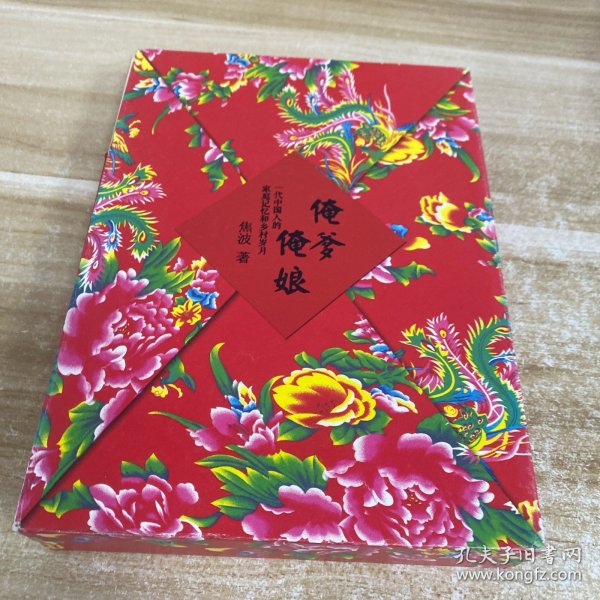 俺爹
俺娘
一代中国人的
家庭记忆和乡村岁月
焦波 著
孔夫子旧书网
www.kongfz.com